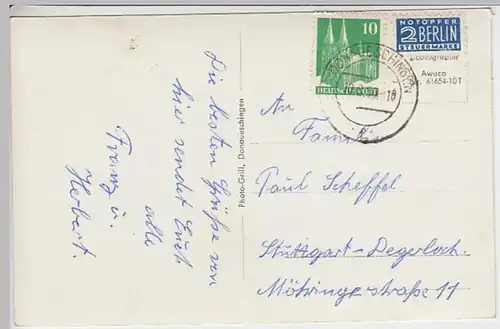 Die besten Grüße von
hier sendet Euch
alle
Franz u.
Herbert.
Photo-Grill, Donaueschingen
10
DEUTSCHE POST
NOTOPFER
2 BERLIN
STEUERMARKE
DONAUESCHINGEN
Awuco
61654-10T
An
Familie
Paul Scheffel
Stuttgart-Degerloch.
Möhringerstraße 11